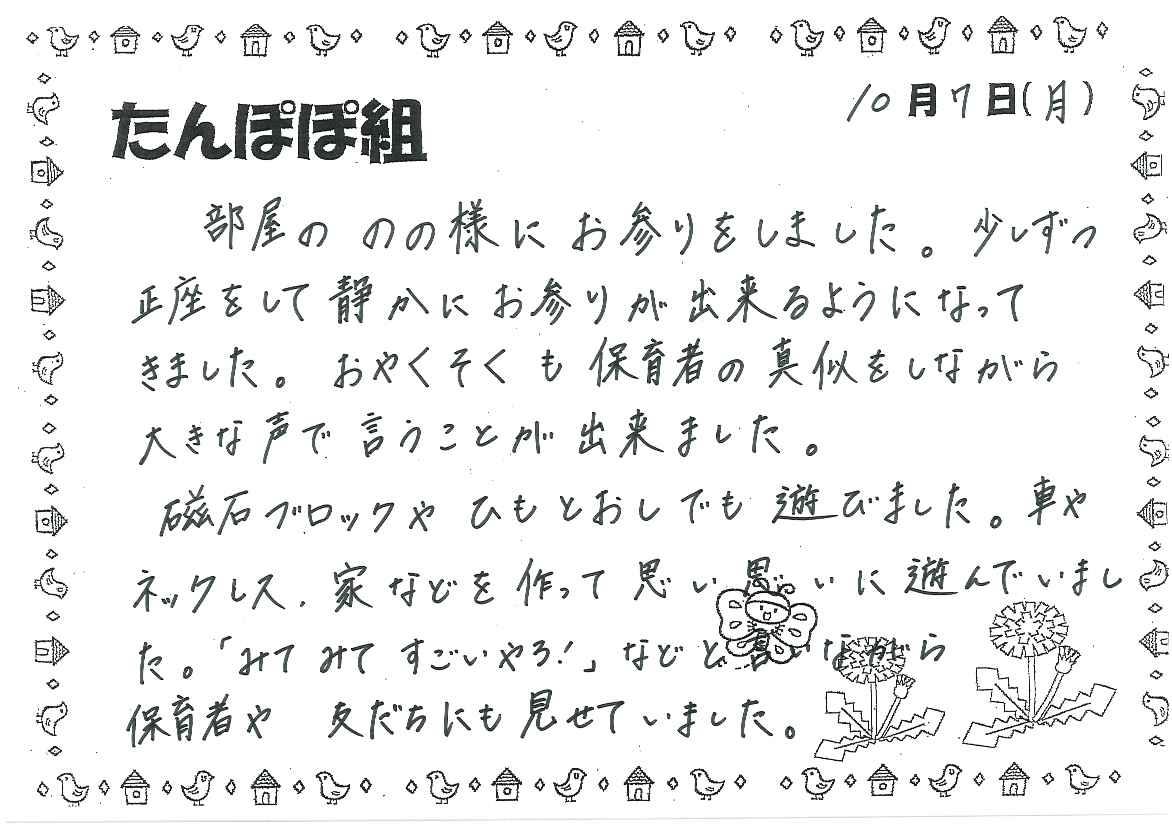 たんぽぽ組
10月7日(月)
部屋の のの様に お参りをしました。少しずつ
正座をして静かにお参りが出来るようになって
きました。おやくそくも保育者の真似をしながら
大きな声で言うことが出来ました。
磁石ブロックやひもとおしでも遊びました。車や
ネックレス、家などを作って思い思いに遊んでいまし
た。「みてみてすごいやろ!」などと言いながら
保育者や 友だちにも見せていました。